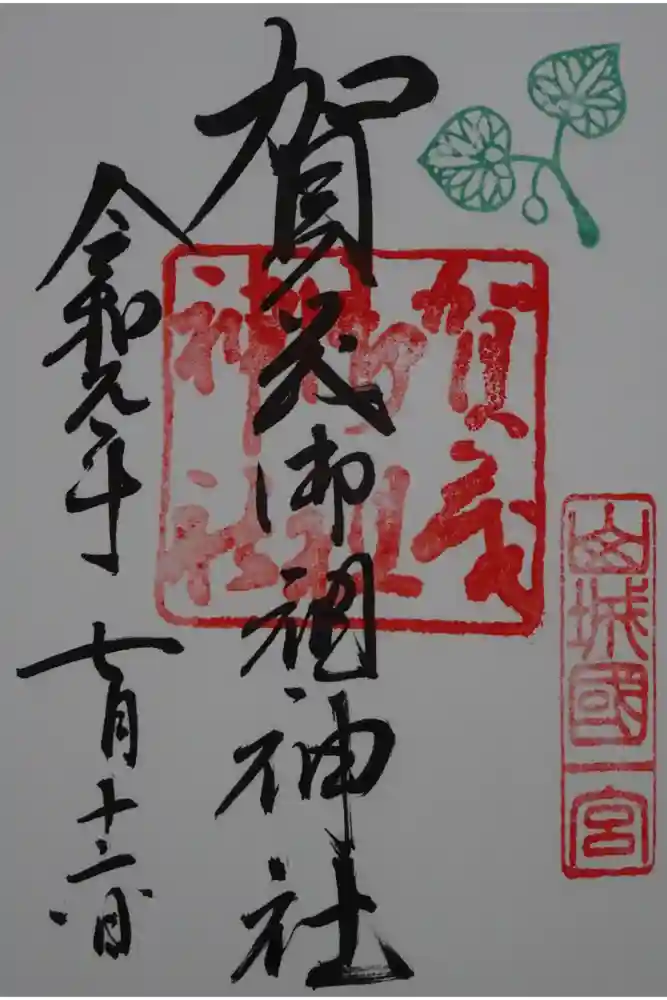 山城國一宮
賀茂御祖神社
賀茂御祖神社
令和元年 七月十二日